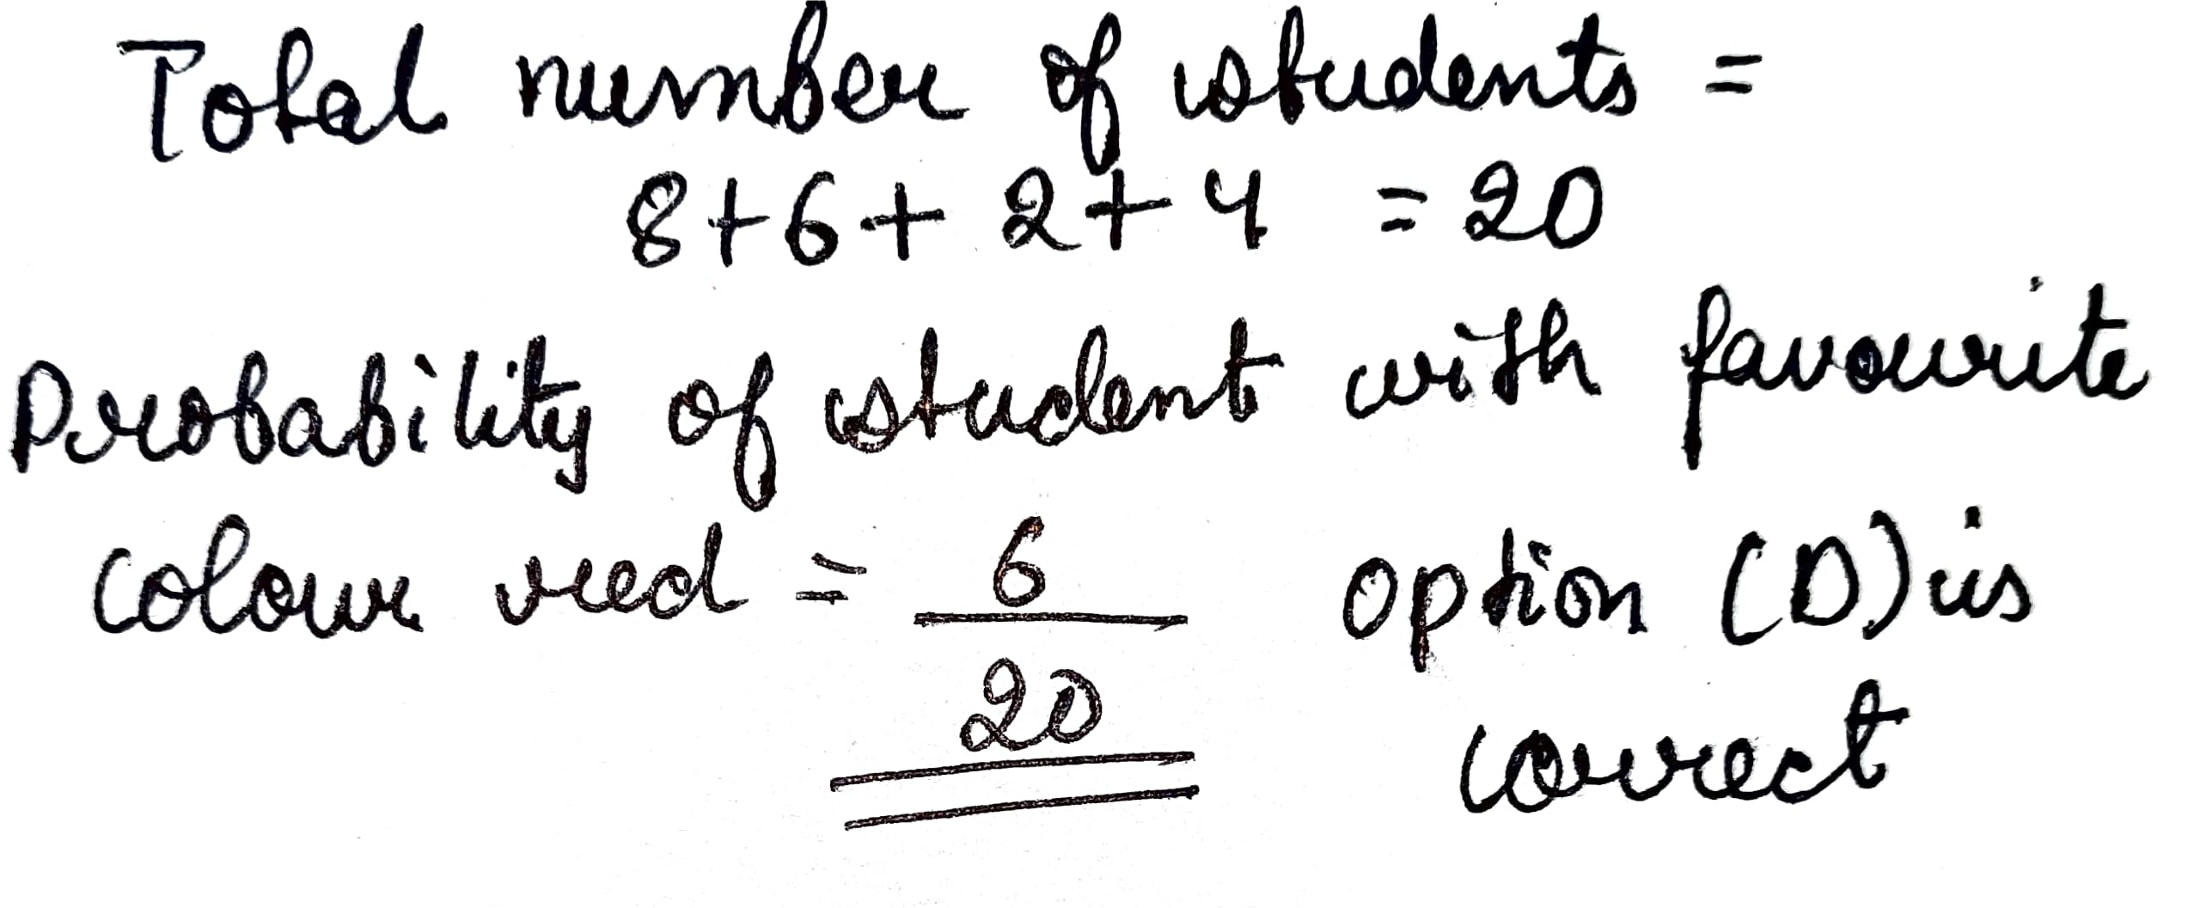 Total number of students =
8+6+2+4 = 20
Probability of student with favourite
colour red = 6/20 option (D) is
correct